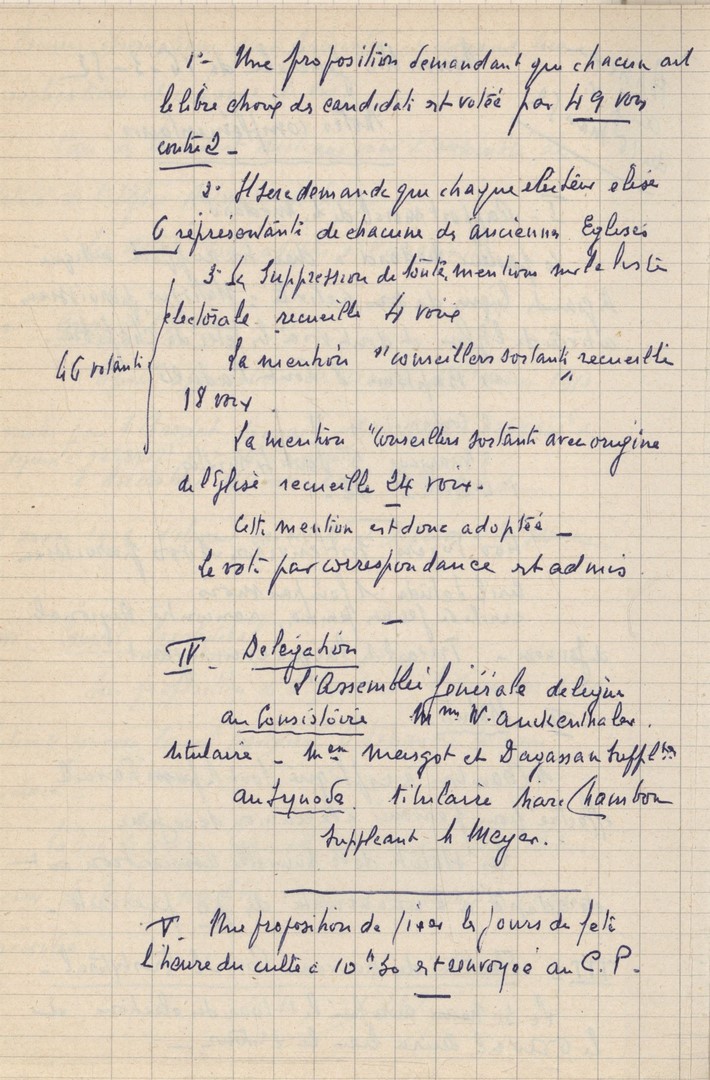 1°- Une proposition demandant que chacun ait
le libre choix des candidats est votée par 49 voix
contre 2 -
2° Il sera demandé que chaque électeur élise
6 représentants de chacune des anciennes Eglises
3° La Suppression de toute mention sur la liste
électorale recueille 4 voix
46 votants
La mention "conseillers sortants" recueille
18 voix.
La mention "Conseillers sortants avec origine
de l'Eglise recueille 24 voix.
Cette mention est donc adoptée -
Le vote par correspondance est admis.
IV - Délégation
L'Assemblée Générale délègue
au Consistoire Mme W. Anckenthaler.
titulaire - Mmes Margot et Dagassan Supplte
au Synode. titulaire Marc Chambon
Suppléant M Meyer.
V. Une proposition de fixer les jours de fête
l'heure du culte à 10h30 est renvoyée au C.P.